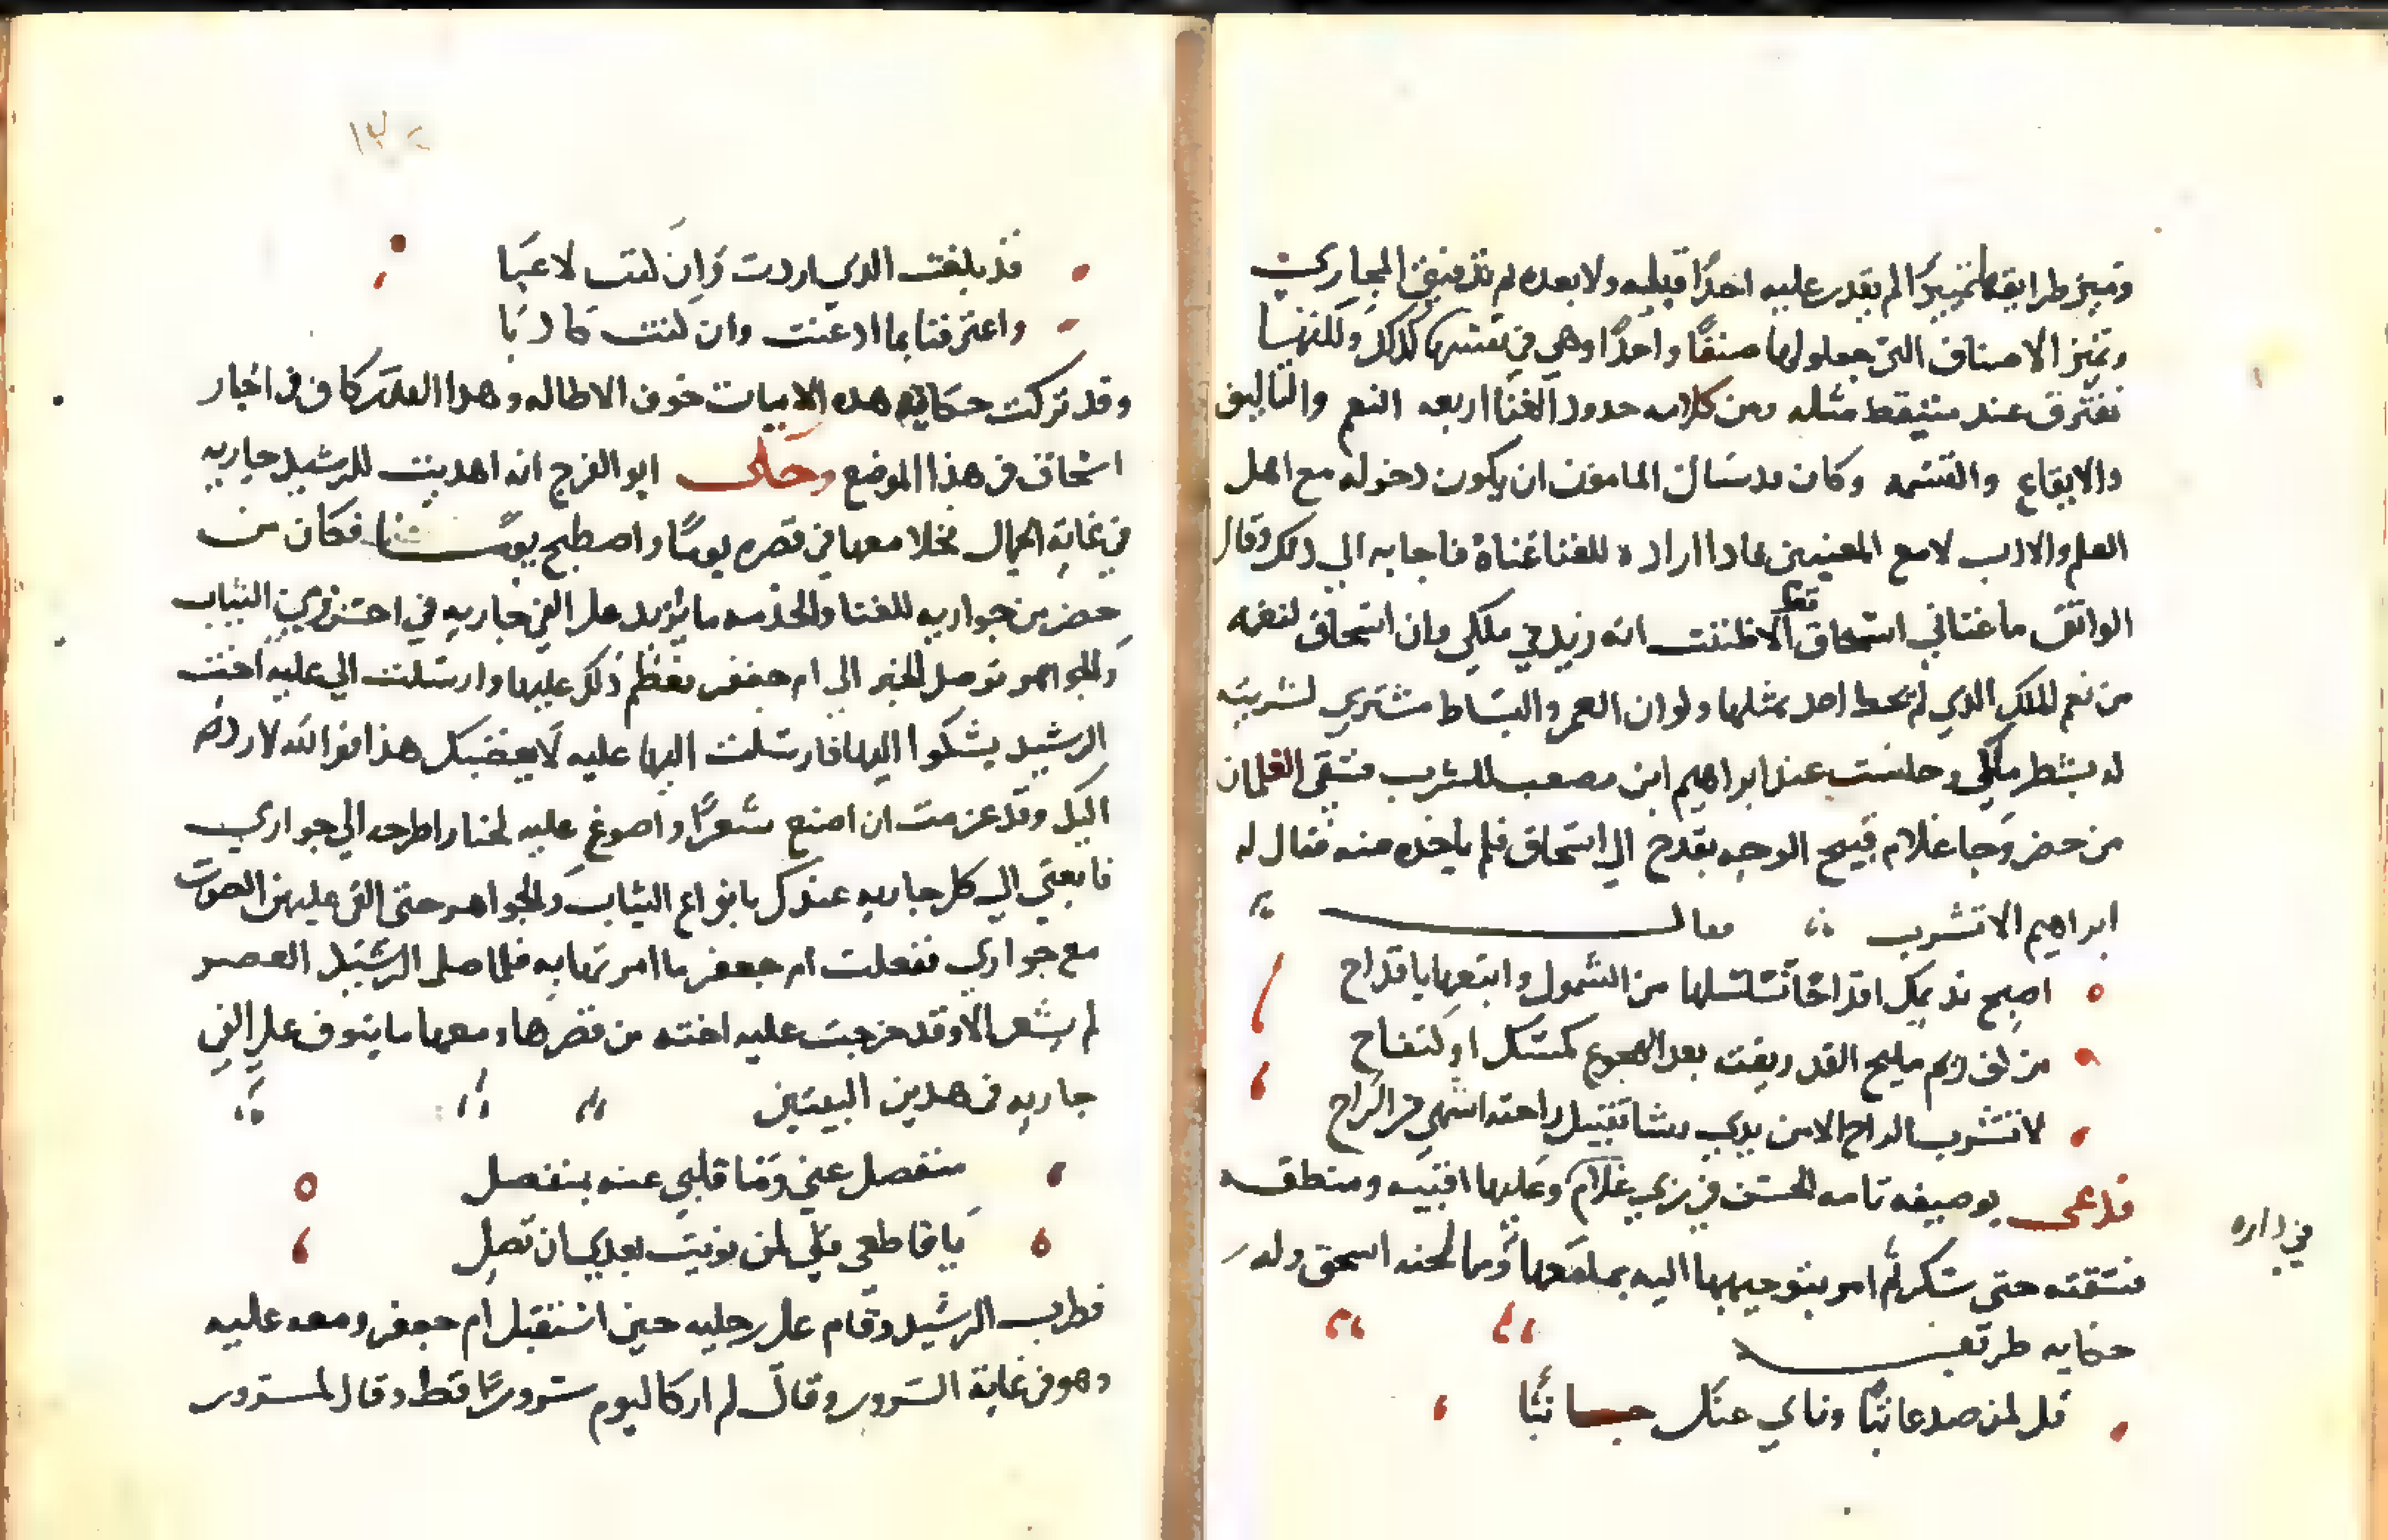 وتميز طرايقه تمييزا لم يقدر عليه احدا قبله ولا بعده لم تذ المجاري
وتميز الاصناف التي جعلوها صنفا واحدا وهي في نفسها كذلك ولكنها
تفترق عند متيقظ مثله ومن كلامه حدود الغنا اربعه النغم والتاليف
والايقاع والقسمه وكان قد سال المامون ان يكون دخوله مع اهل
العلم والادب لا مع المغنيين فاذا اراده للغنا غناه فاجابه الي ذلك وقال
الواثق ما غناني اسحاق قط الا ظننت انه زيد في ملكي وان اسحاق لنعمه
من نعم الملك الذي لم يحط احد بمثلها ولو ان العمر والنشاط مشتري لشريته
له بشطر ملكي وجلست عند ابراهيم ابن مصعب للشرب فسقي الغلمان
من حضر وجا غلام قبيح الوجه بقدح الي اسحاق فلم ياخذه منه فقال له
ابراهيم الا تشرب فقال
اصبح نديمك اقداحا تسلسلها من الشمول واتبعها باقداح
من كف ريم مليح القد ريقته بعد الهجوع كمسك او كتفاح
لا تشرب الراح الا من يدي رشا تقبيل راحته اشهي من الراح
فدعي بوصيفه تامه الحسن في زي غلام وعليها اقبيه ومنطقه
في داره
فسقته حتي سكر ثم امر بتوجيهها اليه بما معها وما لحنه اسحق وله
حكايه طر
قل لمن صد عاتبا وناي عنك جانبا
قد بلغت الذي اردت وان كنت لاعبا
واعترفنا بما ادعيت وان كنت كاذبا
وقد تركت حكايه هذه الابيات خوف الاطاله وهذا القدر كاف في اخبار
اسحاق في هذا الموضع وحكي ابو الفرج انه اهديت للرشيد جاريه
في غايه الجمال فخلا معها في قصره يوما واصطبح يوما فكان من
حضر من جواريه للغنا والخدمه ما يزيد علي الفي جاريه في احسن زي من الثياب
والجواهر فوصل الخبر الي ام جعفر فعظم ذلك عليها وارسلت الي عليه اخت
الرشيد يشكوا اليها فارسلت اليها عليه لا يغضبك هذا فوالله لاردنه
اليك وقد عزمت ان اصنع شعرا واصوغ عليه لحنا واطرحه الي جواري
فابعثي الي كل جاريه عندك بانواع الثياب والجواهر حتي القي عليهن الصوت
مع جواري ففعلت ام جعفر ما امرتها به فلما صلي الرشيد العصر
لم يشعر الا وقد خرجت عليه اخته من قصرها ومعها ما ينوف علي الفي
جاريه في هذين البيتين
منفصل عني وما قلبي عنه بمنفصل
يا قاطعي قل لي لمن نويت بعدي ان تصل
فطرب الرشيد وقام علي رجليه حين استقبل ام جعفر ومعه عليه
وهو في غاية السرور وقال لم ار كاليوم سرورا قط وقال لمسرور